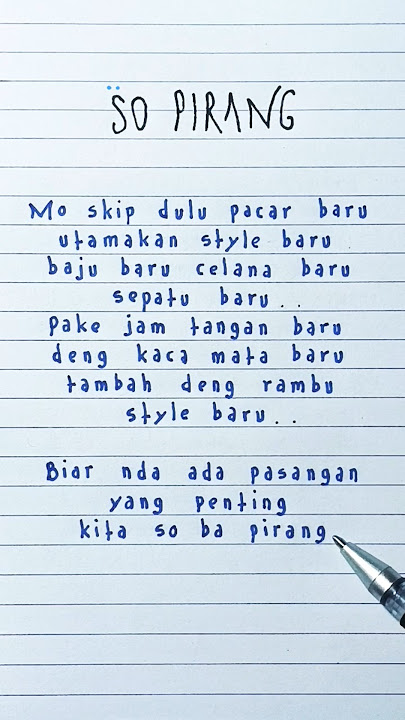 SO PIRANG
Mo skip dulu pacar baru
utamakan style baru
baju baru celana baru
sepatu baru..
pake jam tangan baru
deng kaca mata baru
tambah deng rambu
style baru..
Biar nda ada pasangan
yang penting
kita so ba pirang